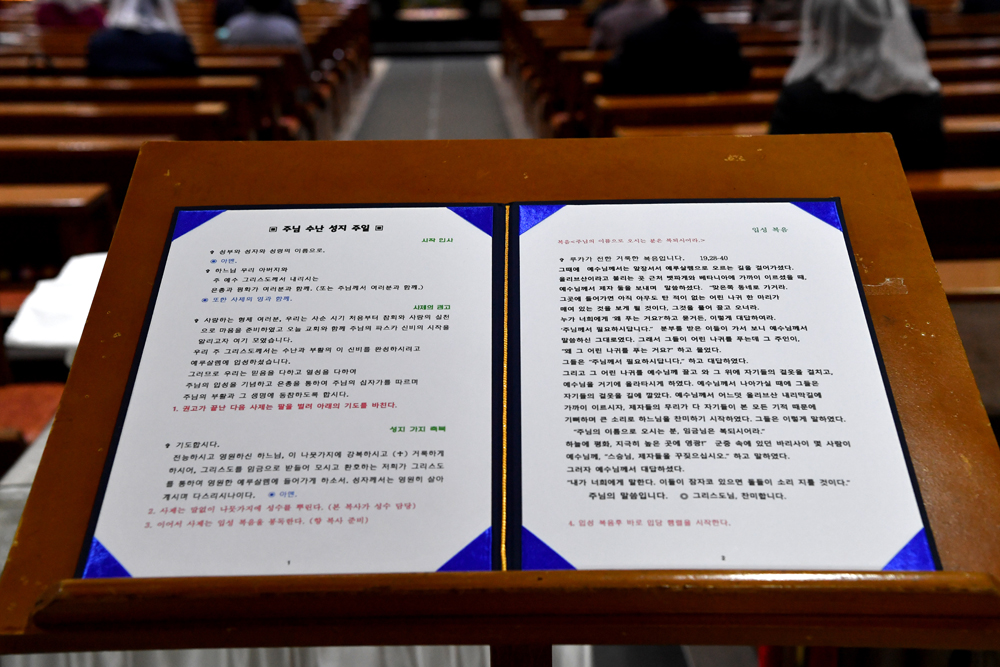 ▣ 주님 수난 성지 주일 ▣
시작 인사
✞ 성부와 성자와 성령의 이름으로.
◉ 아멘.
✞ 하느님 우리 아버지와
주 예수 그리스도께서 내리시는
은총과 평화가 여러분과 함께. (또는 주님께서 여러분과 함께.)
◉ 또한 사제의 영과 함께.
사제의 권고
✞ 사랑하는 형제 여러분, 우리는 사순 시기 처음부터 참회와 사랑의 실천
으로 마음을 준비하였고 오늘 교회와 함께 주님의 파스카 신비의 시작을
알리고자 여기 모였습니다.
우리 주 그리스도께서는 수난과 부활의 이 신비를 완성하시려고
예루살렘에 입성하셨습니다.
그러므로 우리는 믿음을 다하고 열성을 다하여
주님의 입성을 기념하고 은총을 통하여 주님의 십자가를 따르며
주님의 부활과 그 생명에 동참하도록 합시다.
1. 권고가 끝난 다음 사제는 팔을 벌려 아래의 기도를 바친다.
성지 가지 축복
✞ 기도합시다.
전능하시고 영원하신 하느님, 이 나뭇가지에 강복하시고 (✝) 거룩하게
하시어, 그리스도를 임금으로 받들어 모시고 환호하는 저희가 그리스도
를 통하여 영원한 예루살렘에 들어가게 하소서. 성자께서는 영원히 살아
계시며 다스리시나이다. ◉ 아멘.
2. 사제는 말없이 나뭇가지에 성수를 뿌린다. (본 복사가 성수 담당)
3. 이어서 사제는 입성 복음을 봉독한다. (향 복사 준비)
1
입성 복음
복음<주님의 이름으로 오시는 분은 복되시어라.>
✞ 루카가 전한 거룩한 복음입니다. 19,28-40
그때에 예수님께서는 앞장서서 예루살렘으로 오르는 길을 걸어가셨다.
올리브산이라고 불리는 곳 근처 벳파게와 베타니아에 가까이 이르셨을 때,
예수님께서 제자 둘을 보내며 말씀하셨다. “맞은쪽 동네로 가거라.
그곳에 들어가면 아직 아무도 탄 적이 없는 어린 나귀 한 마리가
매여 있는 것을 보게 될 것이다. 그것을 풀어 끌고 오너라.
누가 너희에게 ‘왜 푸는 거요?’하고 묻거든, 이렇게 대답하여라.
‘주님께서 필요하시답니다.’” 분부를 받은 이들이 가서 보니 예수님께서
말씀하신 그대로였다. 그래서 그들이 어린 나귀를 푸는데 그 주인이,
“왜 그 어린 나귀를 푸는 거요?” 하고 물었다.
그들은 “주님께서 필요하시답니다.” 하고 대답하였다.
그리고 그 어린 나귀를 예수님께 끌고 와 그 위에 자기들의 겉옷을 걸치고,
예수님을 거기에 올라타시게 하였다. 예수님께서 나아가실 때에 그들은
자기들의 겉옷을 길에 깔았다. 예수님께서 어느덧 올리브산 내리막길에
가까이 이르시자, 제자들의 무리가 다 자기들이 본 모든 기적 때문에
기뻐하며 큰 소리로 하느님을 찬미하기 시작하였다. 그들은 이렇게 말하였다.
“주님의 이름으로 오시는 분, 임금님은 복되시어라.”
하늘에 평화, 지극히 높은 곳에 영광!” 군중 속에 있던 바리사이 몇 사람이
예수님께, “스승님, 제자들을 꾸짖으십시오.” 하고 말하였다.
그러자 예수님께서 대답하셨다.
“내가 너희에게 말한다. 이들이 잠자코 있으면 돌들이 소리 지를 것이다.”
주님의 말씀입니다. ◎ 그리스도님, 찬미합니다.
4. 입성 복음후 바로 입당 행렬을 시작한다.
2